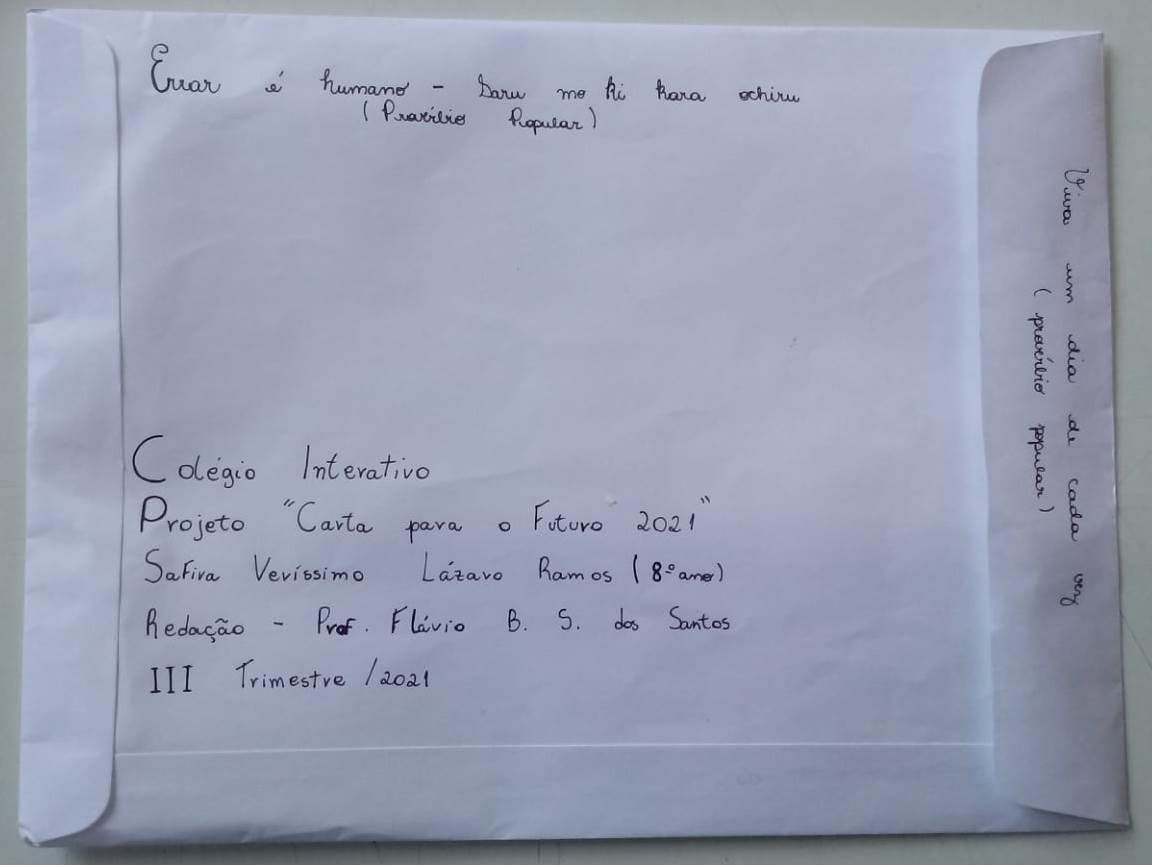 Errar é humano - Saru mo ki kara ochiru
(Provérbio Popular)
Colégio Interativo
Projeto "Carta para o Futuro 2021"
Safira Veríssimo Lázaro Ramos (8º ano)
Redação - Prof. Flávio B. S. dos Santos
III Trimestre / 2021
Viva um dia de cada vez
(provérbio popular)